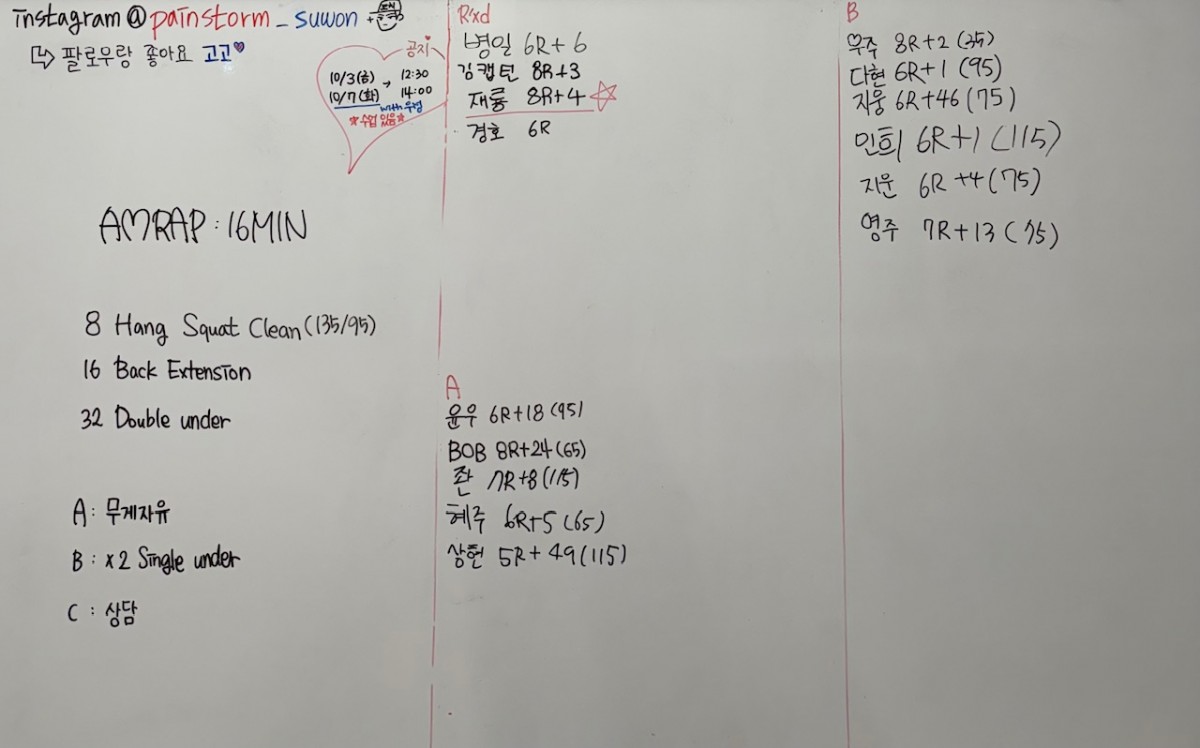 instagram @painstorm_suwon +
팔로우랑 좋아요 고고♥
공지
10/3(금) → 12:30
10/7(화) 14:00
with 우형
☆수업 있음☆
AMRAP : 16MIN
8 Hang Squat Clean (135/95)
16 Back Extension
32 Double under
A : 무게자유
B : x2 Single under
C : 상담
R'xd
병일 6R+6
김캡턴 8R+3
재룡 8R+4 ☆
경호 6R
A
윤우 6R+18 (95)
BOB 8R+24 (65)
좐 7R+8 (115)
혜주 6R+5 (65)
상헌 5R+49 (115)
B
우주 8R+2 (35)
다현 6R+1 (95)
지웅 6R+46 (75)
민희 6R+1 (115)
지운 6R+4 (75)
영주 7R+13 (75)